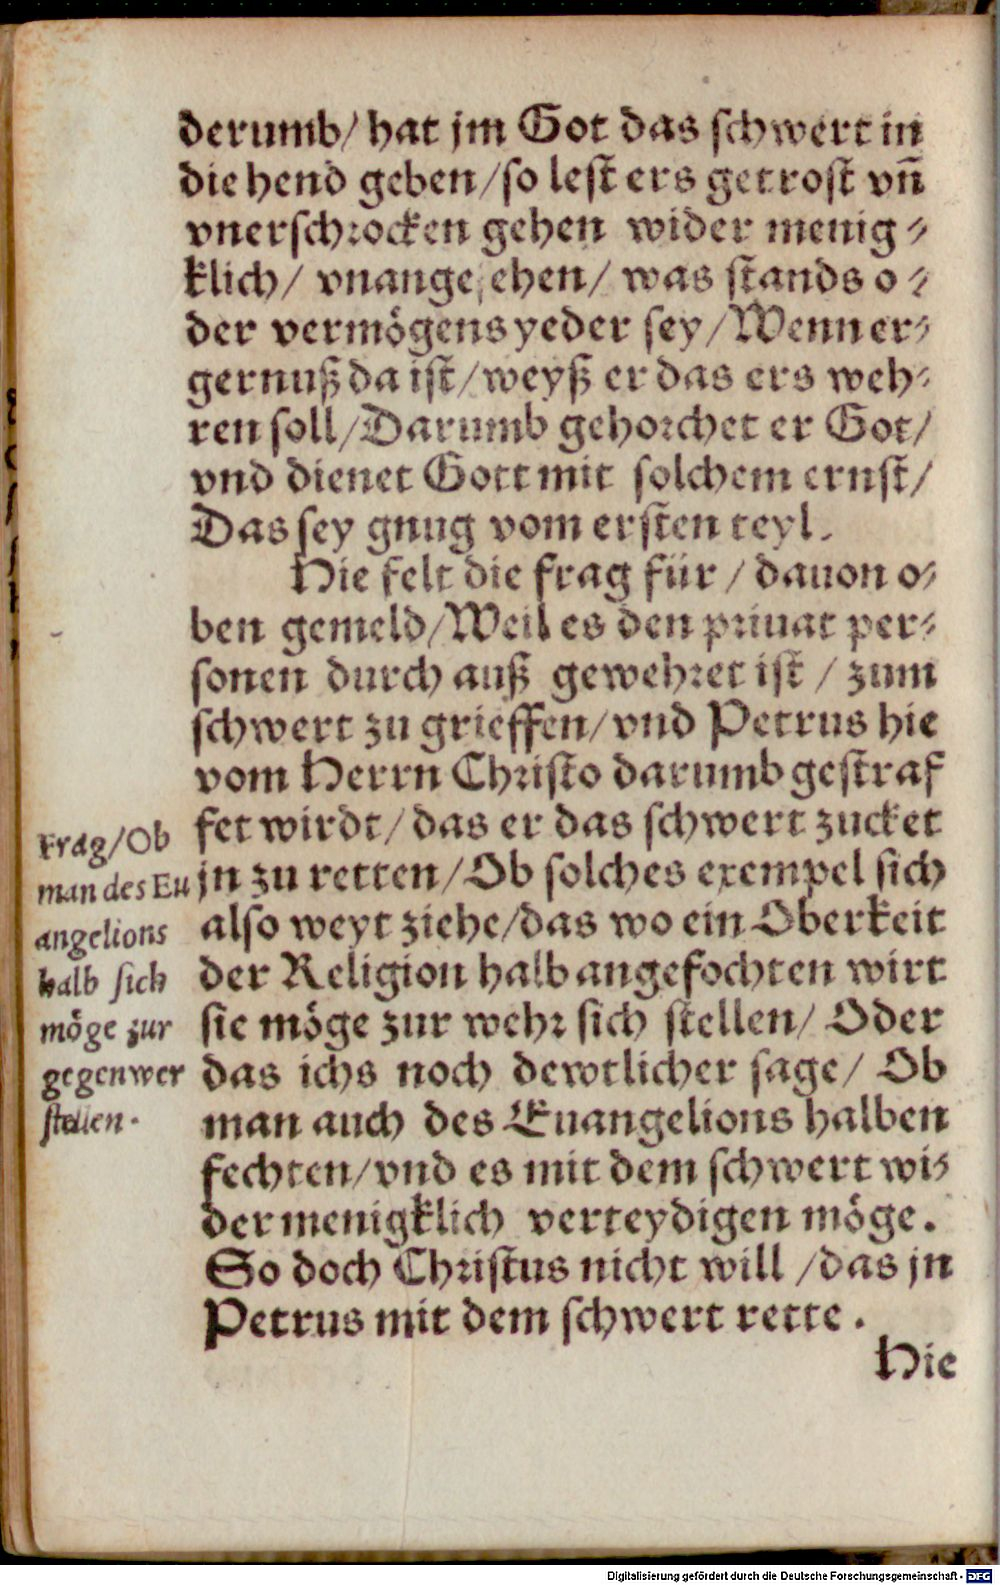 derumb/ hat jm Got das schwert in
die hend geben/so lest ers getrost vñ
vnerschrocken gehen wider menig⸗
klich/ vnangesehen/ was stands o⸗
der vermögens yeder sey/Wenn er⸗
gernuß da ist/weyß er das ers weh⸗
ren soll/Darumb gehorchet er Got/
vnd dienet Gott mit solchem ernst/
Das sey gnug vom ersten teyl.
Hie felt die frag für / dauon o⸗
ben gemeld/Weil es den priuat per⸗
sonen durch auß gewehret ist / zum
schwert zu grieffen/vnd Petrus hie
vom Herrn Christo darumb gestraf
fet wirdt/ das er das schwert zucket
jn zu retten/Ob solches exempel sich
also weyt ziehe/das wo ein Oberkeit
der Religion halb angefochten wirt
sie möge zur wehr sich stellen/ Oder
das ichs noch dewtlicher sage/ Ob
man auch des Euangelions halben
fechten/vnd es mit dem schwert wi⸗
der menigklich verteydigen möge.
So doch Christus nicht will /das jn
Petrus mit dem schwert rette.
Hie
Frag/Ob
man des Eu
angelions
halb sich
möge zur
gegenwer
stellen.
Digitalisierung gefördert durch die Deutsche Forschungsgemeinschaft - DFG